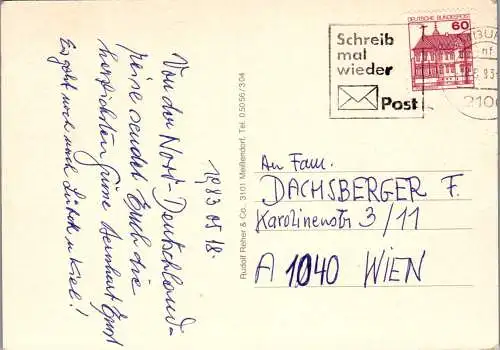 Schreib
mal
wieder
Post
DEUTSCHE BUNDESPOST
60
2100
1983 05 18.
Von der Nord-Deutschland-
reise sendet Euch die
herzlichsten Grüsse
Es geht noch nach Lübeck u Kiel!
Rudolf Reher & Co., 3101 Meißendorf, Tel. 05056/304
An Fam.
DACHSBERGER F.
Karolinenstr 3/11
A 1040 WIEN